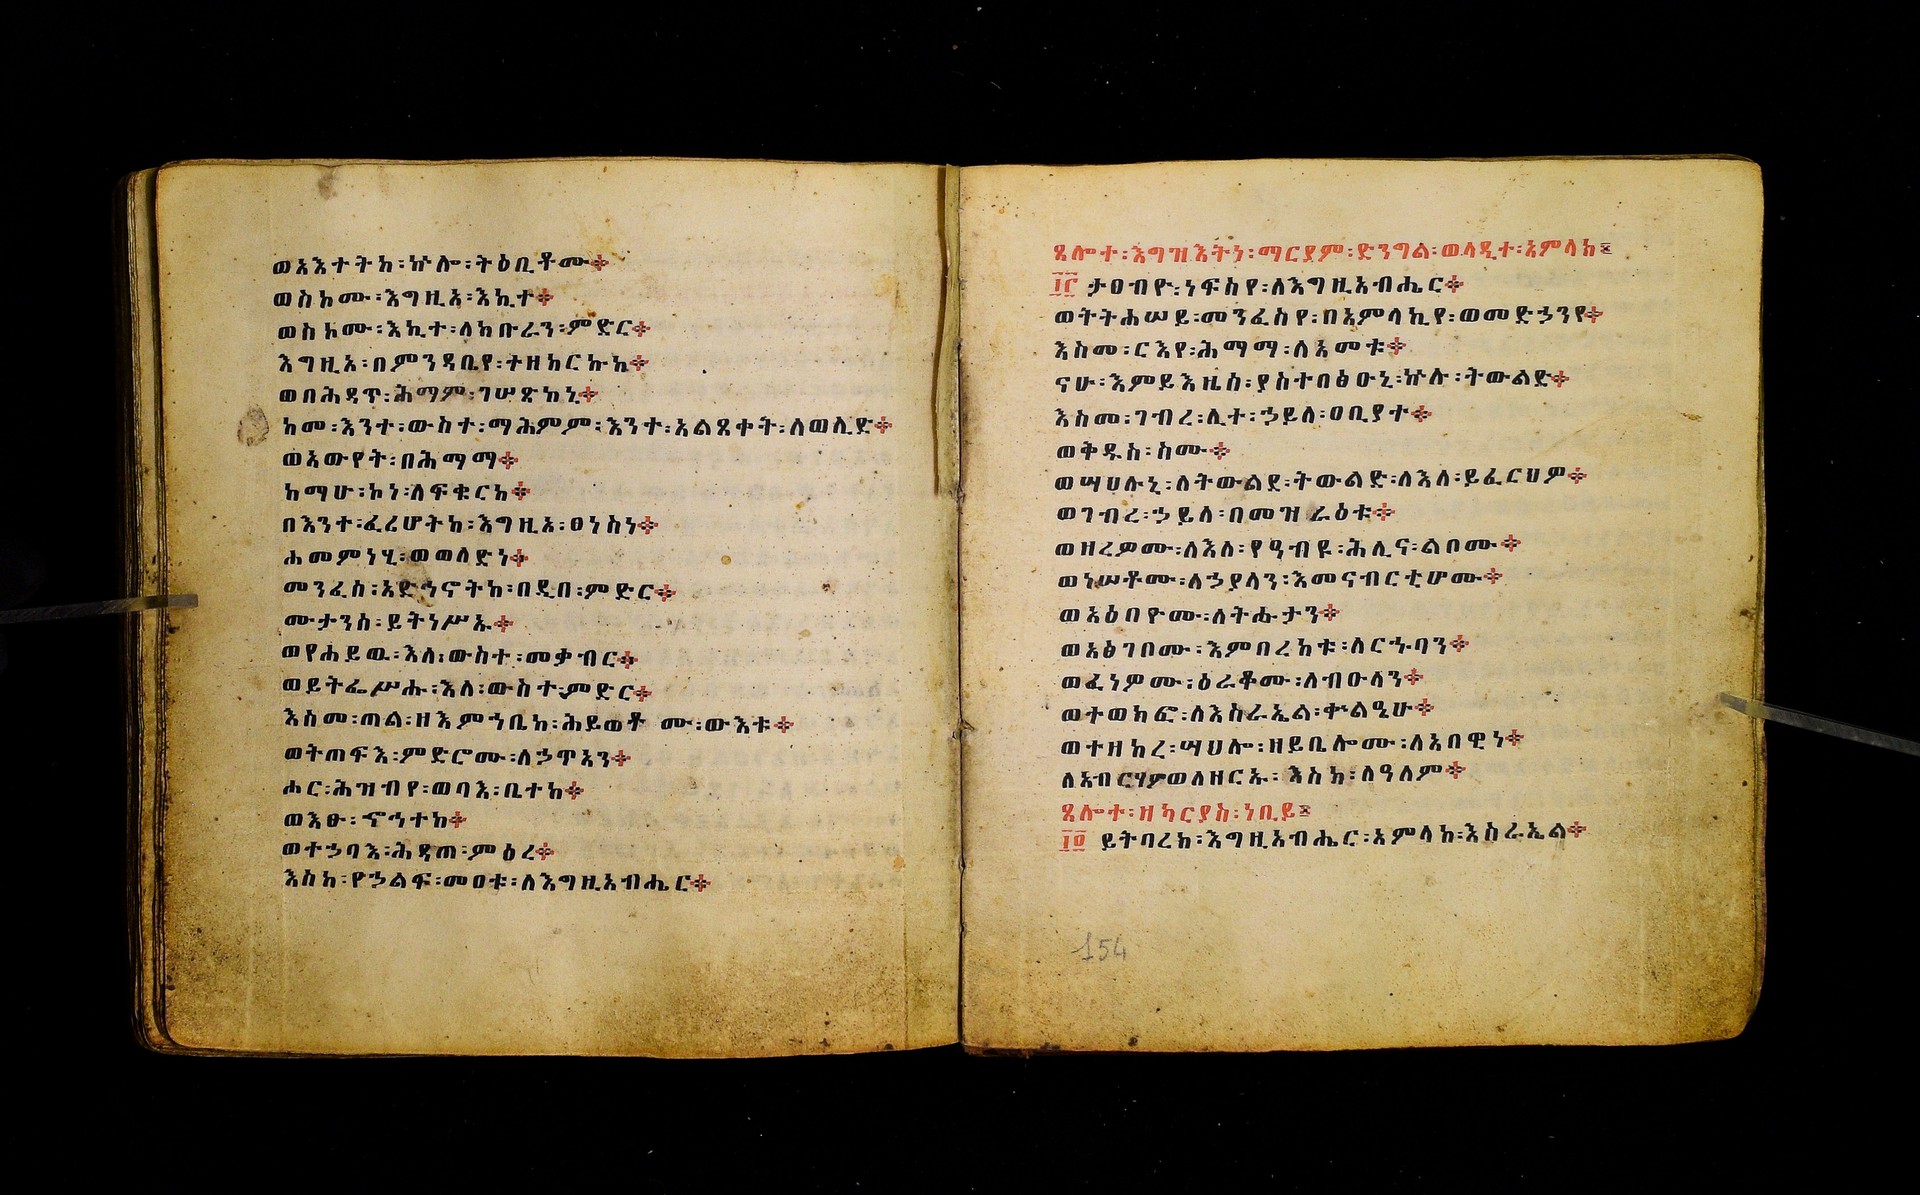 ወአእተትከ፡ኵሎ፡ትዕቢቶሙ።
ወስኮሙ፡እግዚአ፡እኪተ።
ወስኮሙ፡እኪተ፡ለክቡራን፡ምድር።
እግዚአ፡በምንዳቤየ፡ተዘከርኩከ።
ወበሕዳጥ፡ሕማም፡ገሠጽከኒ።
ከመ፡እንተ፡ውስተ፡ማሕምም፡እንተ፡አልጸቀት፡ለወሊድ።
ወአውየት፡በሕማማ።
ከማሁ፡ኮነ፡ለፍቁርከ።
በእንተ፡ፈረሆትከ፡እግዚአ፡ፀነስነ።
ሐመምነሂ፡ወወለድነ።
መንፈስ፡አድኅኖትከ፡በዲበ፡ምድር።
ሙታንስ፡ይትነሥኡ።
ወየሐይዉ፡እለ፡ውስተ፡መቃብር።
ወይትፌሥሑ፡እለ፡ውስተ፡ምድር።
እስመ፡ጠል፡ዘእምኀቤከ፡ሕይወቶ ሙ፡ውእቱ።
ወትጠፍእ፡ምድሮሙ፡ለኃጥአን።
ሖር፡ሕዝብየ፡ወባእ፡ቤተከ።
ወእፁ፡ኆኅተከ።
ወተኃባእ፡ሕዳጠ፡ምዕረ።
እስከ፡የኃልፍ፡መዐቱ፡ለእግዚአብሔር።
ጸሎተ፡እግዝእትነ፡ማርያም፡ድንግል፡ወላዲተ፡አምላክ፨
፲፫ ታዐብዮ፡ነፍስየ፡ለእግዚአብሔር።
ወትትሐሠይ፡መንፈስየ፡በአምላኪየ፡ወመድኃንየ።
እስመ፡ርእየ፡ሕማማ፡ለአመቱ።
ናሁ፡እምይእዜስ፡ያስተበፅዑኒ፡ኵሉ፡ትውልድ።
እስመ፡ገብረ፡ሊተ፡ኃይለ፡ዐቢያተ።
ወቅዱስ፡ስሙ።
ወሣህሉኒ፡ለትውልደ፡ትውልድ፡ለእለ፡ይፈርህዎ።
ወገብረ፡ኃይለ፡በመዝራዕቱ።
ወዘረዎሙ፡ለእለ፡የዓብዩ፡ሕሊና፡ልቦሙ።
ወነሠቶሙ፡ለኃያላን፡እመናብርቲሆሙ።
ወአዕበዮሙ፡ለትሑታን።
ወአፅገቦሙ፡እምበረከቱ፡ለርኁባን።
ወፈነዎሙ፡ዕራቆሙ፡ለብዑላን።
ወተወክፎ፡ለእስራኤል፡ቍልዔሁ።
ወተዘከረ፡ሣህሎ፡ዘይቤሎሙ፡ለአበዊነ።
ለአብርሃምወለዘርኡ፡ እስከ፡ለዓለም።
ጸሎተ፡ዘካርያስ፡ነቢይ፨
፲፬ ይትባረክ፡እግዚአብሔር፡አምላከ፡እስራኤል።
154